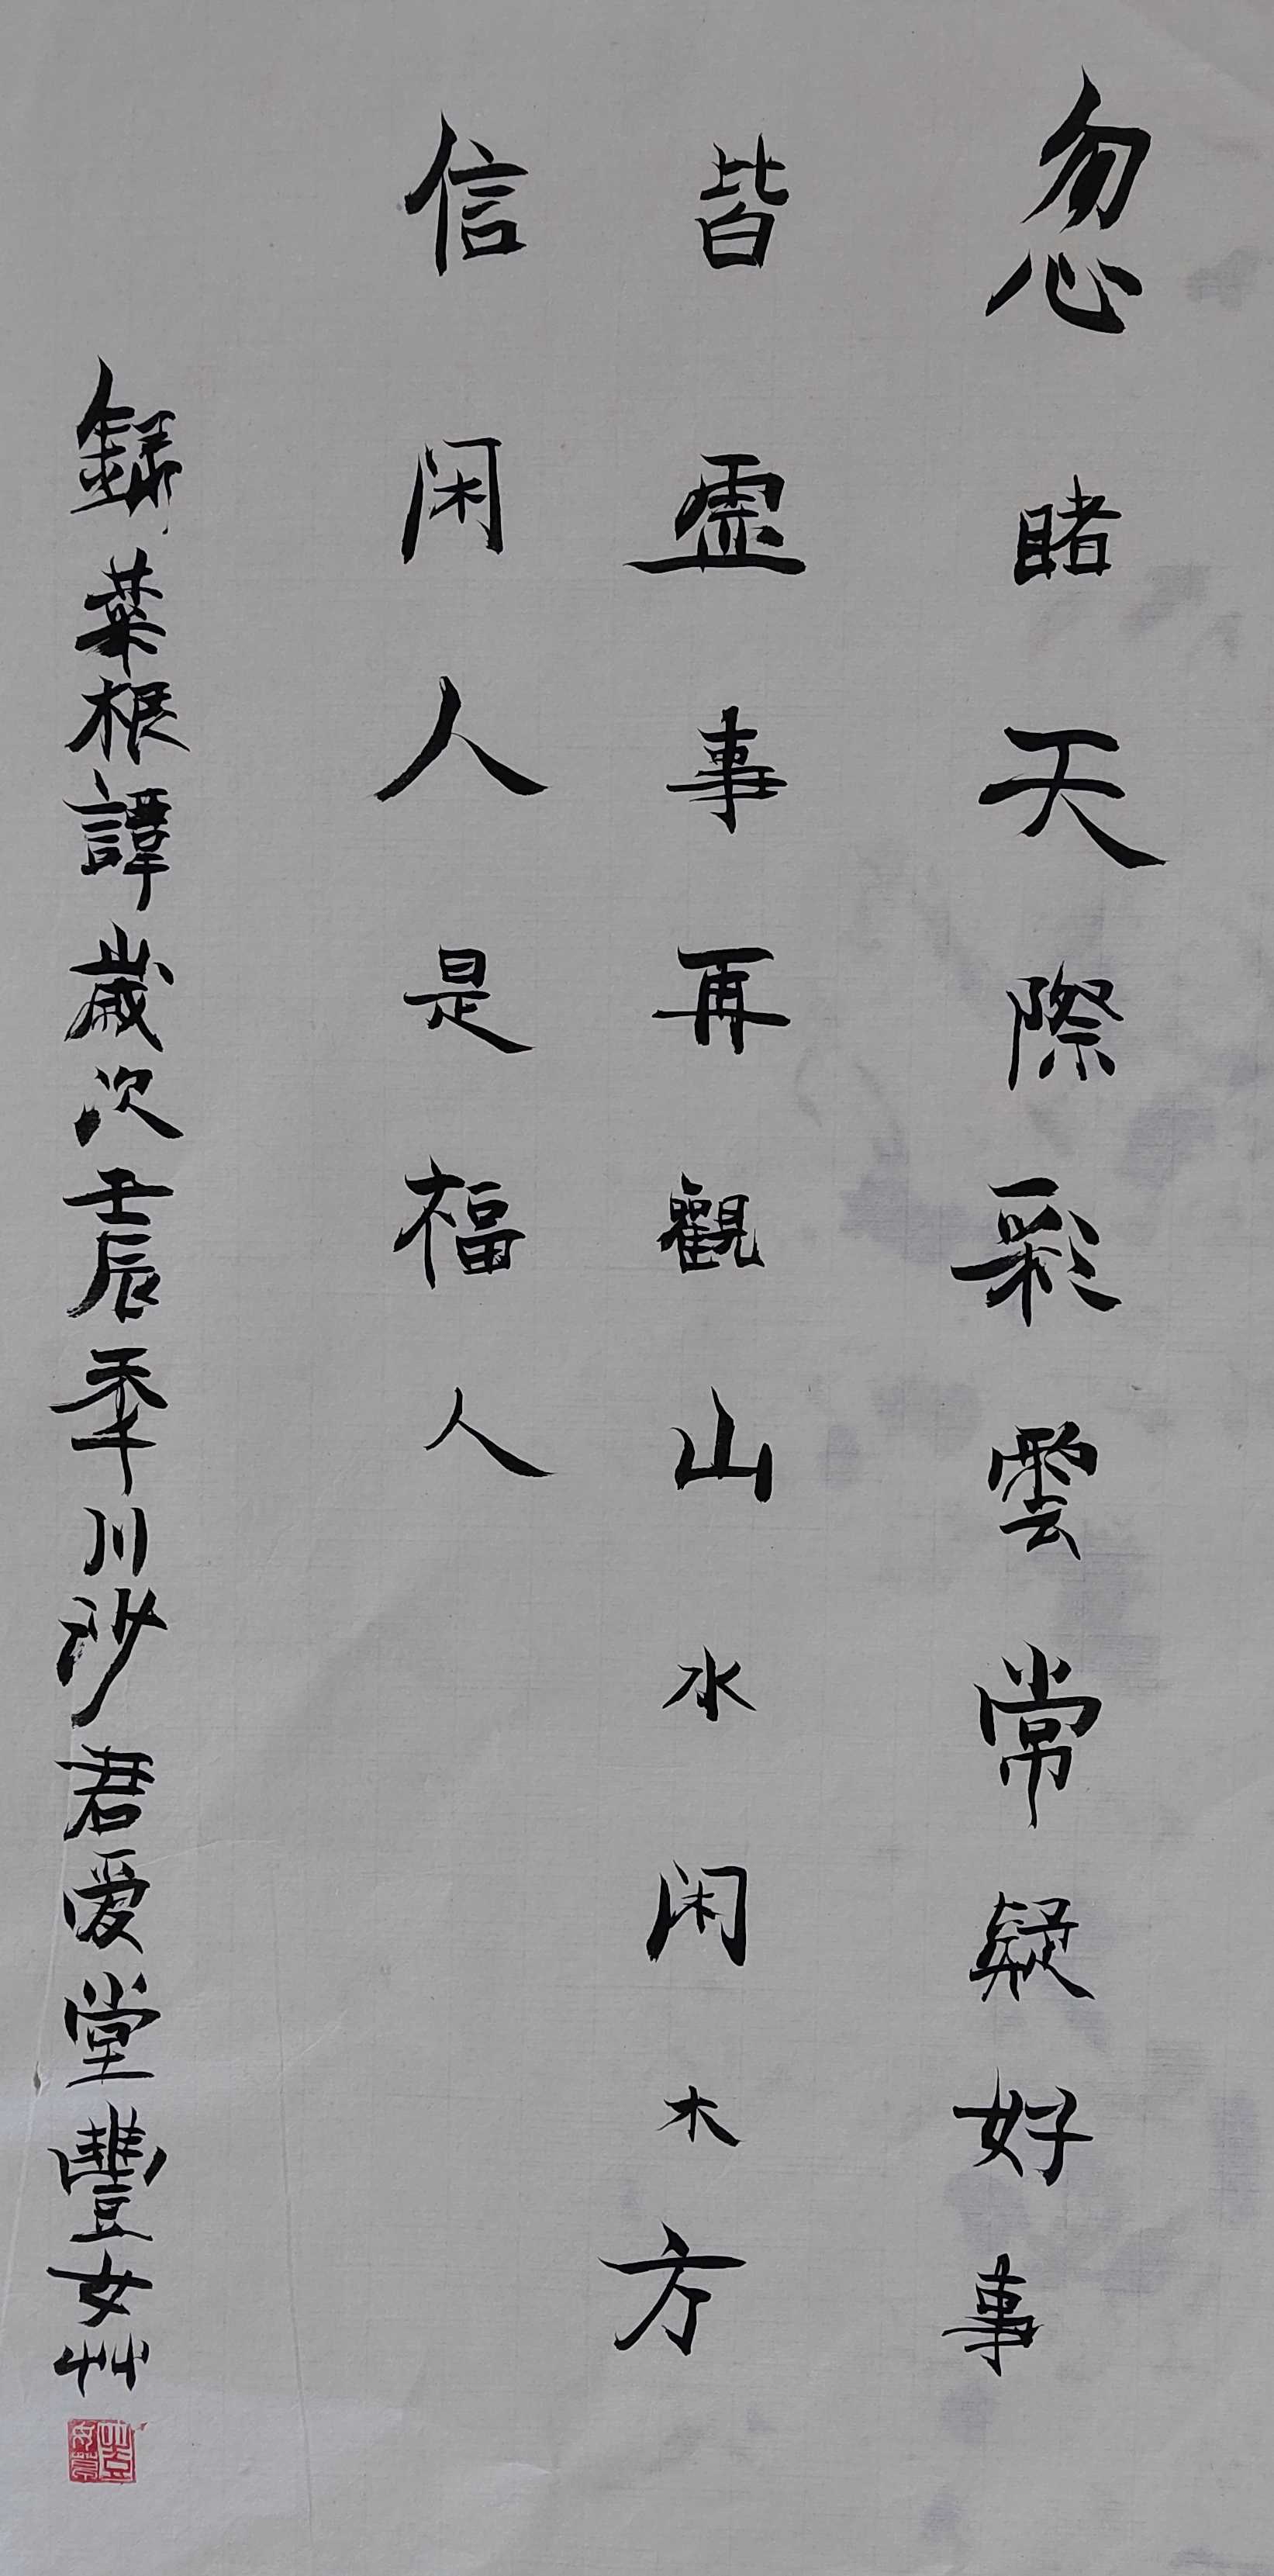 忽睹天際彩雲常疑好事
皆虛事再觀山水闲木方
信闲人是福人
錄菜根譚歲次壬辰年川沙君爱堂豐女艸